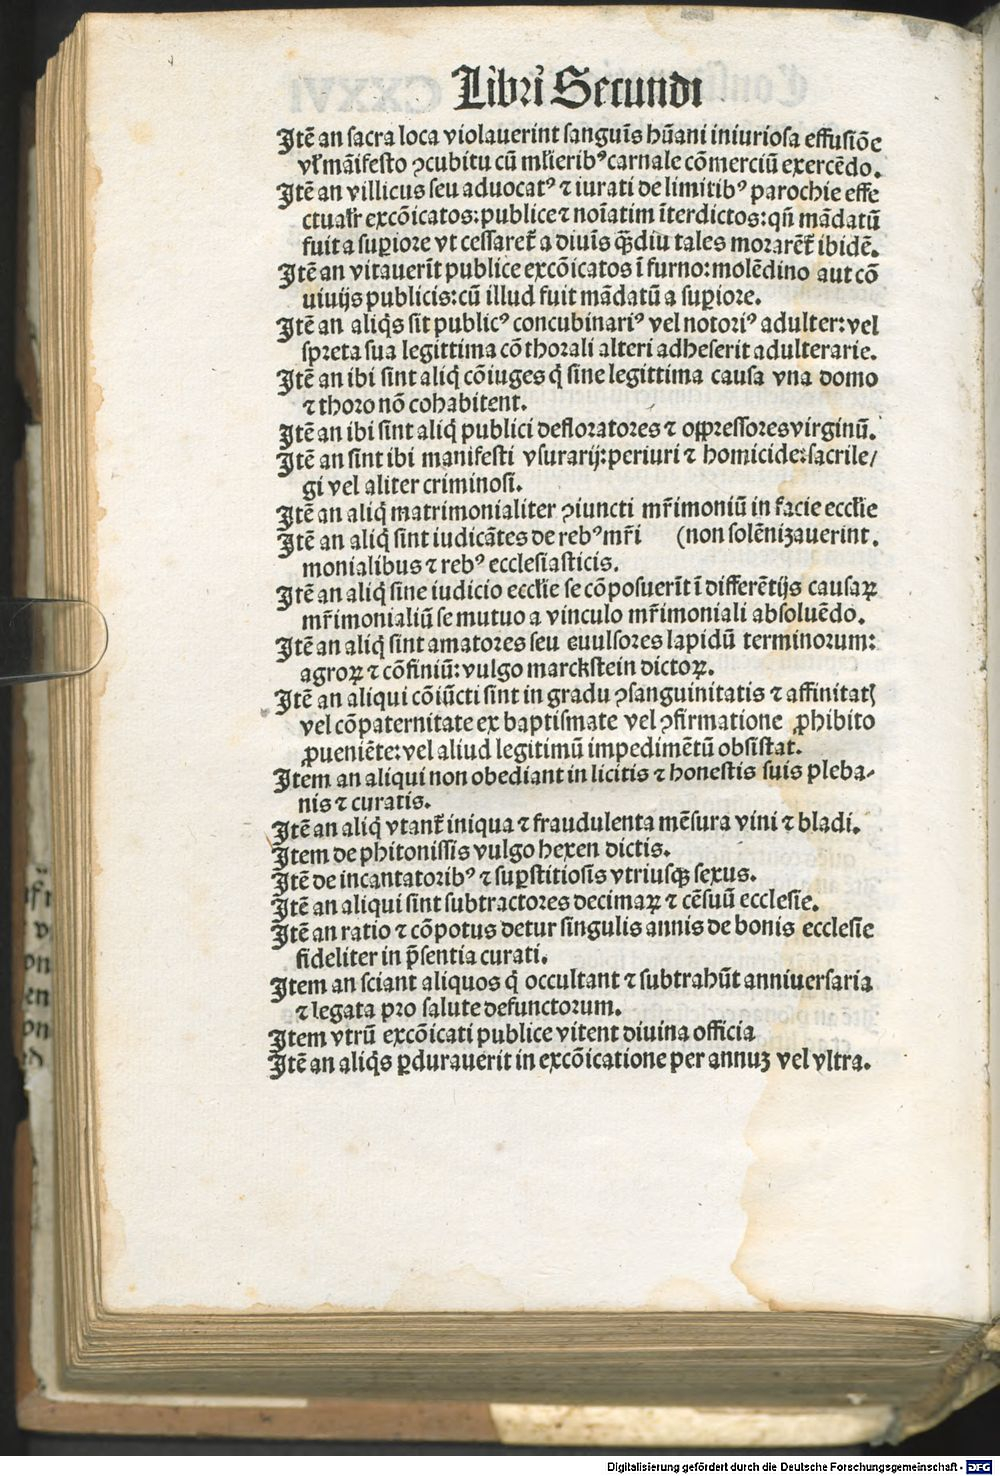 Libri Secundi
Itē an sacra loca violauerint sanguīs hūani iniuriosa effusiōe
vl̄ māifesto ꝯcubitu cū ml̄ierib⁹ carnale cōmerciū exercēdo.
Itē an villicus seu aduocat⁹ ⁊ iurati de limitib⁹ parochie effe
ctual̄r excōicatos: publice ⁊ noīatim īterdictos: qn̄ mādatū
fuit a suꝑiore vt cessarēt a diuīs qᷓ̄diu tales morarēt̄ ibidē.
Itē an vitauerīt publice excōicatos ī furno: molēdino aut cō
uiuijs publicis: cū illud fuit mādatū a suꝑiore.
Itē an aliq̇s sit public⁹ concubinari⁹ vel notori⁹ adulter: vel
spreta sua legittima cōthorali alteri adheserit adulterarie.
Itē an ibi sint aliq̇ cōiuges q̇ sine legittima causa vna domo
⁊ thoro nō cohabitent.
Itē an ibi sint aliq̇ publici defloratores ⁊ opp̄ressores virginū.
Itē an sint ibi manifesti vsurarij: periuri ⁊ homicide: sacrile/
gi vel aliter criminosi.
Itē an aliq̇ matrimonialiter ꝯiuncti mr̄imoniū in facie eccl̄ie
Itē an aliq̇ sint iudicātes de reb⁹ mr̄i (non solēnizauerint.
monialibus ⁊ reb⁹ ecclesiasticis.
Itē an aliq̇ sine iudicio eccl̄ie se cōposuerīt ī differētijs causaꝝ
mr̄imonialiū se mutuo a vinculo mr̄imoniali absoluēdo.
Itē an aliq̇ sint amatores seu euulsores lapidū terminorum:
agroꝝ ⁊ cōfiniū: vulgo marckstein dictoꝝ.
Itē an aliqui cōiūcti sint in gradu ꝯsanguinitatis ⁊ affinitatꝭ
vel cōpaternitate ex baptismate vel ꝯfirmatione ꝓhibito
ꝓueniēte: vel aliud legitimū impedimētū obsistat.
Item an aliqui non obediant in licitis ⁊ honestis suis pleba-
nis ⁊ curatis.
Itē an aliq̇ vtant̄ iniqua ⁊ fraudulenta mēsura vini ⁊ bladi.
Item de phitonissis vulgo hexen dictis.
Itē de incantatorib⁹ ⁊ suꝑstitiosis vtriusqꝫ sexus.
Itē an aliqui sint subtractores decimaꝝ ⁊ cēsuū ecclesie.
Itē an ratio ⁊ cōpotus detur singulis annis de bonis ecclesie
fideliter in p̄sentia curati.
Item an sciant aliquos q̇ occultant ⁊ subtrahūt anniuersaria
⁊ legata pro salute defunctorum.
Item vtrū excōicati publice vitent diuina officia
Itē an aliq̇s ꝑdurauerit in excōicatione per annuꝫ vel vltra.
Digitalisierung gefördert durch die Deutsche Forschungsgemeinschaft - DFG